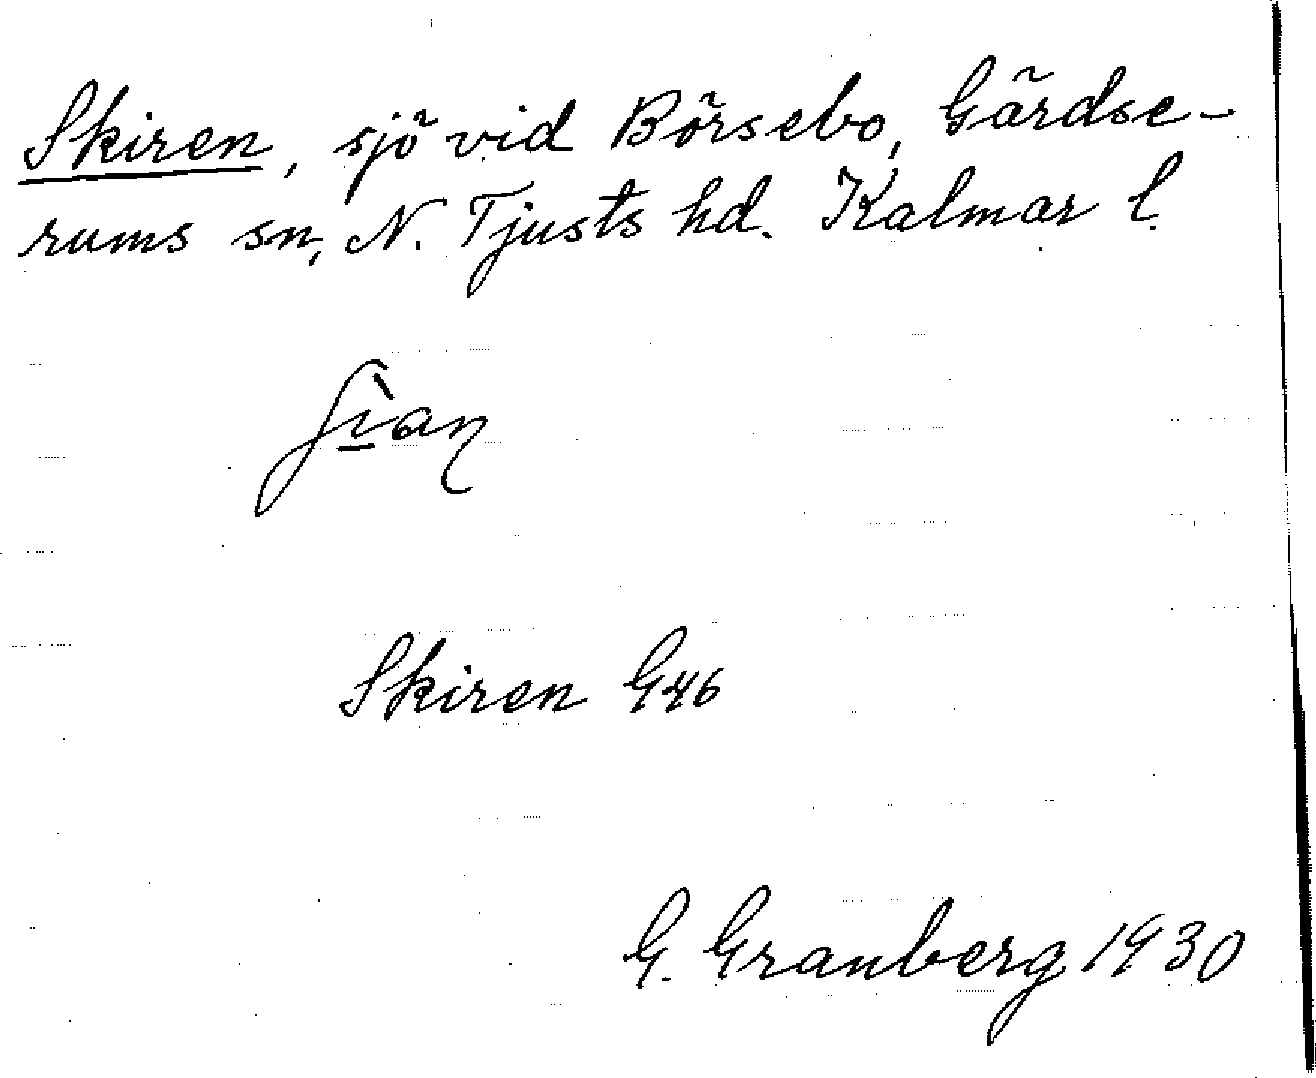 Skiren, sjö vid Börsebo, Gärdse-
rums sn, N. Tjusts hd. Kalmar l.
Skiren G46
G. Granberg 1930